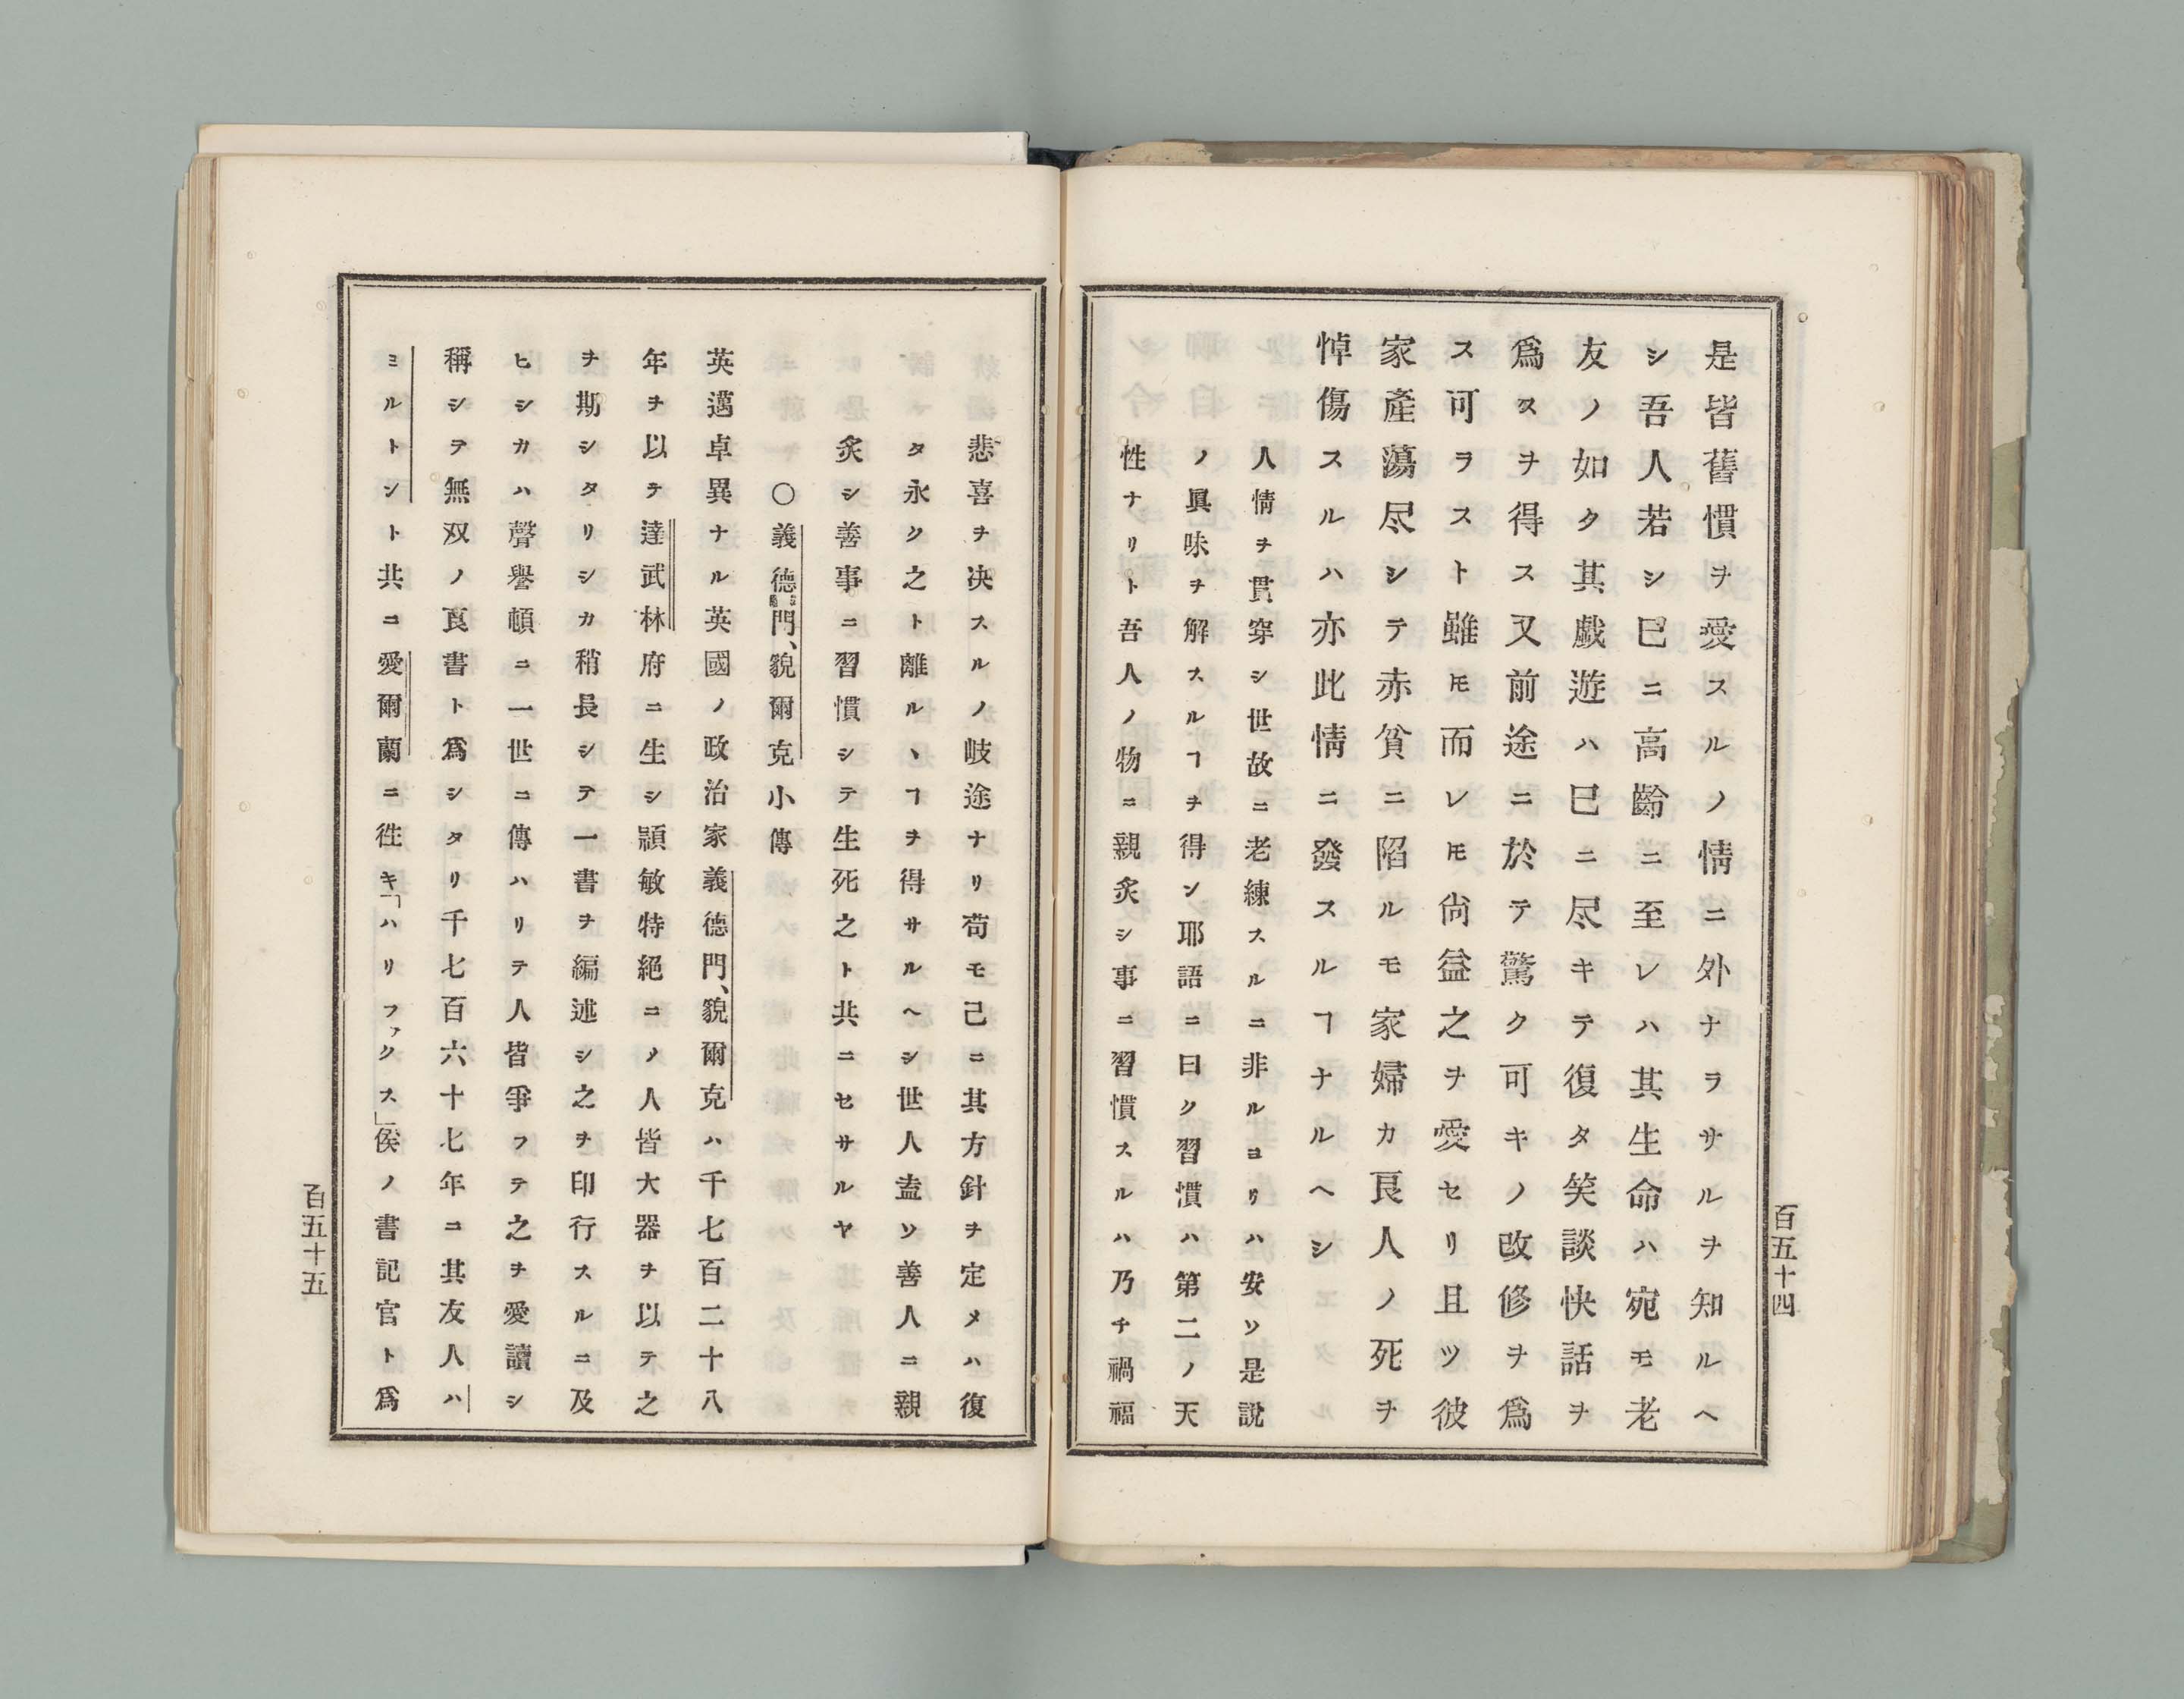 是皆舊慣ヲ愛スルノ情ニ外ナラサルヲ知ルヘ
シ吾人若シ巳ニ高齡ニ至レハ其生命ハ宛モ老
友ノ如タ其戯遊ハ巳ニ尽キテ復タ笑談快話ヲ
爲スヲ得ス又前途ニ於テ驚ク可キノ改修ヲ爲
ス可ラスト雖𪜈而レ𪜈尙益之ヲ愛セリ且ツ彼
家產蕩尽シテ赤貧ニ陷ルモ家婦カ良人ノ死ヲ
悼傷スルハ亦此情ニ發スルヿナルヘシ
人情ヲ貫穿シ世故ニ老練スルニ非ルヨリハ安ソ是說
ノ眞味ヲ解スルヿヲ得ン耶語ニ曰ク習慣ハ第二ノ天
性ナリト吾人ノ物ニ親炙シ事ニ習慣スルハ乃チ禍福
百五十四
悲喜ヲ决スルノ岐途ナリ苟モ己ニ其方針ヲ定メハ復
タ永ク之ト離ルヽヿヲ得サルヘシ世人盍ソ善人ニ親
炙シ善事ニ習慣シテ生死之ト共ニセサルヤ
○義德門、貌爾克小傳
英邁卓異ナル英國ノ政治家義德門、貌爾克ハ千七百二十八
年ヲ以テ達武林府ニ生シ頴敏特絕ニメ人皆大器ヲ以テ之
ヲ斯シタリシカ稍長シテ一書ヲ編述シ之ヲ印行スルニ及
ヒシカハ聲譽頓ニ一世ニ傳ハリテ人皆爭フテ之ヲ愛讀シ
稱シヲ無双ノ良書ト爲シタリ千七百六十七年ニ其友人ハ
ミルトント共ニ愛爾蘭ニ徃キ「ハリファクス」侯ノ書記官ト爲
百五十五